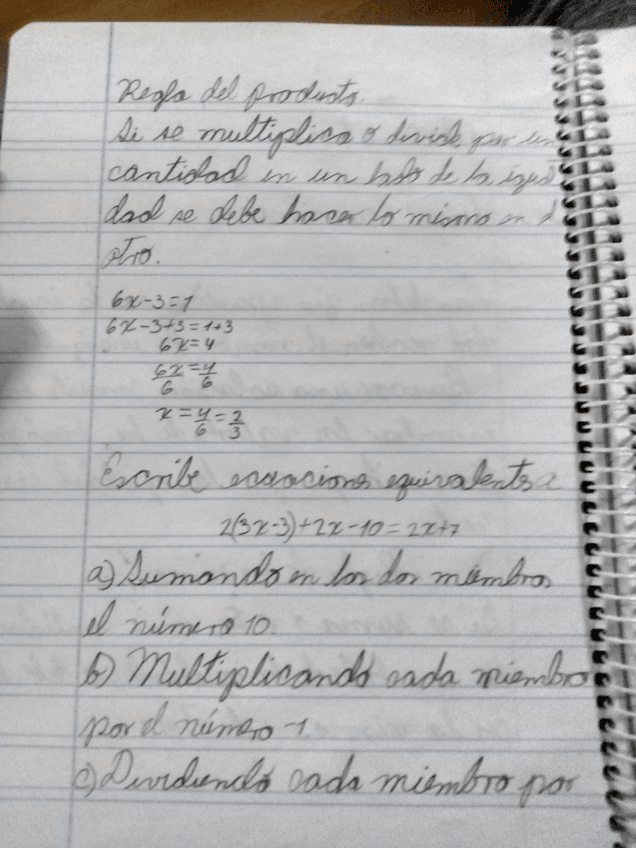 Regla del producto.
Si se multiplica o divide por un
cantidad en un lado de la igual
dad se debe hacer lo mismo en el
otro.
6x-3=1
6x-3+3=1+3
6x=4
6x/6=4/6
x=4/6=2/3
Escribe ecuaciones equivalentes a
2(3x-3)+2x-10=2x+7
a) Sumando en los dos miembros
el número 10.
b) Multiplicando cada miembro
por el número -1
c) Dividiendo cada miembro por